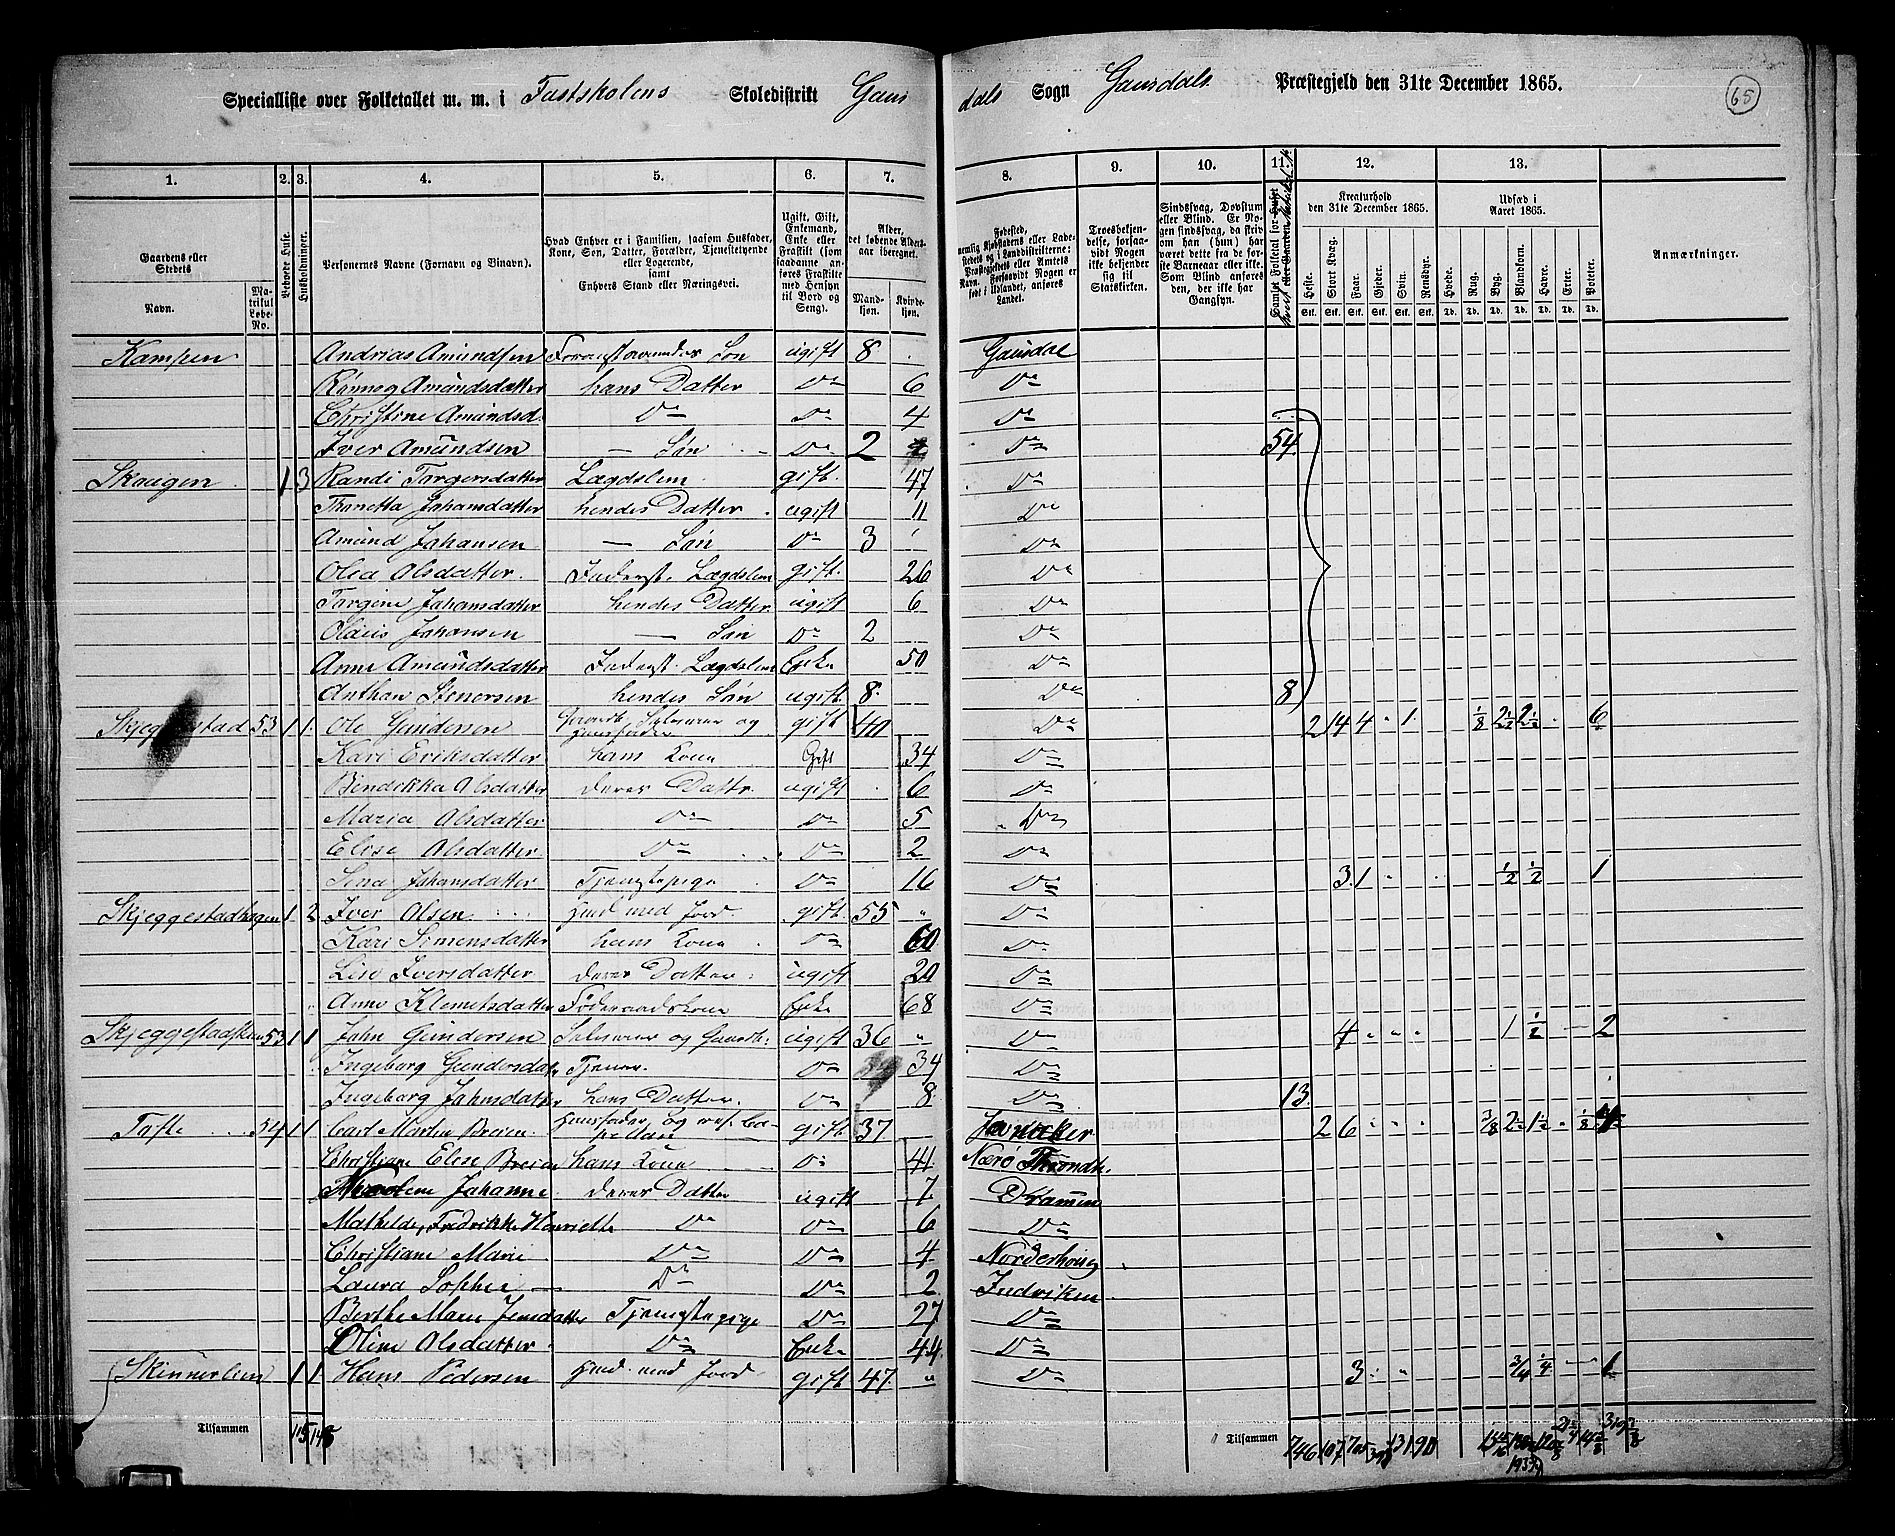 Specialliste over Folketallet m. m. i Fastskolens Skoledistrikt Gausdals Sogn Gausdals Præstegjeld den 31te December 1865. 65
1. 2. 3. 4. 5. 6. 7. 8. 9. 10. 11. 12. 13.
Gaardens eller Stedets
Navn. Matrikul Løbe-No.
Beboede Huse.
Husholdninger.
Personernes Navne (Fornavn og Binavn).
Hvad Enhver er i Familien, saasom Husfader, Kone, Søn, Datter, Forældre, Tjenestetyende eller Logerende, samt Enhvers Stand eller Næringsvei.
Ugift, Gift, Enkemand, Enke eller Fraskilt (som saadanne anføres Fraskilte med Hensyn til Bord og Seng).
Alder, det løbende Aldersaar iberegnet.
Mandkjøn. Kvindekjøn.
Troesbekjendelse, forsaavidt Nogen ikke bekjender sig til Statskirken.
Sindssvag, Døvstum eller Blind. Er Nogen sindssvag, da skriv om han (hun) har været dette fra de første Barneaar eller ikke. Som Blind anføres den, der ikke har Gangsyn.
Kreaturhold den 31te December 1865.
Heste. Stort Kvæg. Faar. Gjeder. Svin. Rensdyr.
Udsæd i Aaret 1865.
Hvede. Rug. Byg. Blandkorn. Havre. Erter. Poteter.
Anmærkninger.
Kampen Andrias Amundsen Søn ugift 8 Gausdal
Rønneg Amundsdatter hans Datter Do 6 Do
Christine Amundsd. Do Do 4 Do
Iver Amundsen — Søn Do 2 Do 54
Skougen 1 3 Randi Torgersdatter Lægdslem gift 47 Do
Thonetta Johansdatter hendes Datter ugift 11 Do
Amund Johansen — Søn Do 3 Do
Olea Olsdatter Inderst. Lægdslem gift 26 Do
Torgine Johansdatter hendes Datter ugift 6 Do
Olaus Johansen — Søn Do 2 Do
Anne Amundsdatter Inderst. Lægdslem Enke 50 Do
Anthon Stenersen hendes Søn ugift 8 Do 8
Skjeggestad 53 1 1 Ole Gundersen Gaardb. Selveier og Huusfader gift 40 Do 2 14 4 1 1/8 2 1/2 2 1/2 6
Kari Eriksdatter hans Kone Gift 34 Do
Bendikka Olsdatter deres Dattr. ugift 6 Do
Maria Olsdatter Do Do 5 Do
Elise Olsdatter Do Do 2 Do
Sina Johansdatter Tjenestepige Do 16 Do 3 1 1/2 1/2 1
Skjeggestadhagen 1 2 Iver Olsen Huusm. med Jord gift 55 Do
Kari Simensdatter hans Kone Do 60 Do
Lise Iversdatter deres Datter ugift 20 Do
Anne Klemetsdatter Føderaadskone Enke 68 Do
53 1 1 John Gundersen Selveier og Gaardb. ugift 36 Do 4 1 1/2 2
Ingeborg Gundersdatr. Tjener Do 34 Do
Ingeborg Johnsdatter hans Datter Do 8 Do 13
Tofte 54 1 1 Carl Martin Breien Huusfader og res. Capellan gift 37 2 6 3/8 2 1/2 1 1/2 1/8
Christiane Elise Breien hans Kone Do 41 Nærø Throndh.
Johanne deres Datter ugift 7 Drammen
Mathilde, Fredrikke Henriette Do Do 6 Do
Christiane Marie Do Do 4 Norderhoug
Laura Sophie Do Do 2
Berthe Marie Jensdatter Tjenestepige Do 27 Do
Oline Olsdatter Do Enke 44 Do
Skinnerlien 1 1 Hans Pedersen Huusm. med Jord gift 47 Do 3 3/4 1/4 1
Tilsammen
Tilsammen